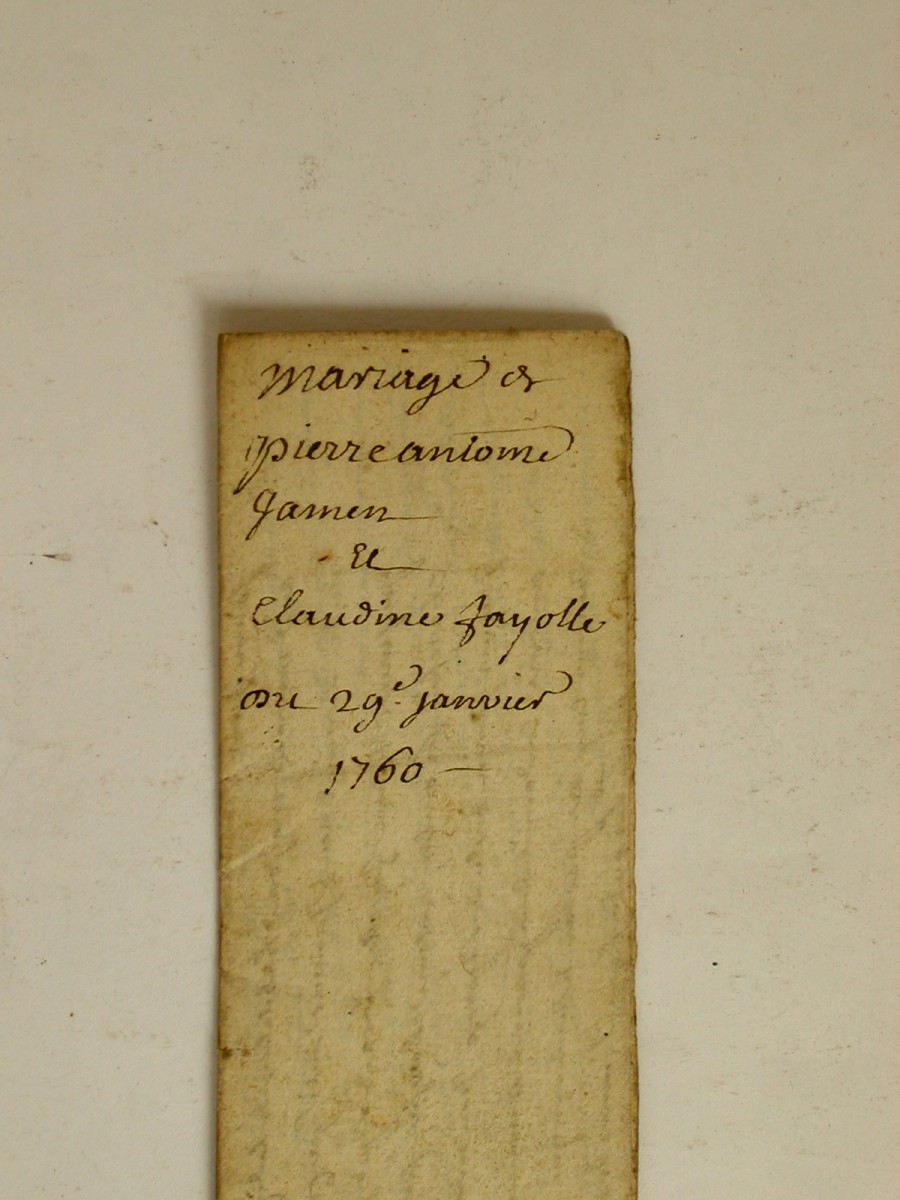 Mariage de
pierre antoine
Jamen
Et
Claudine fayolle
Du 29e. janvier
1760 —